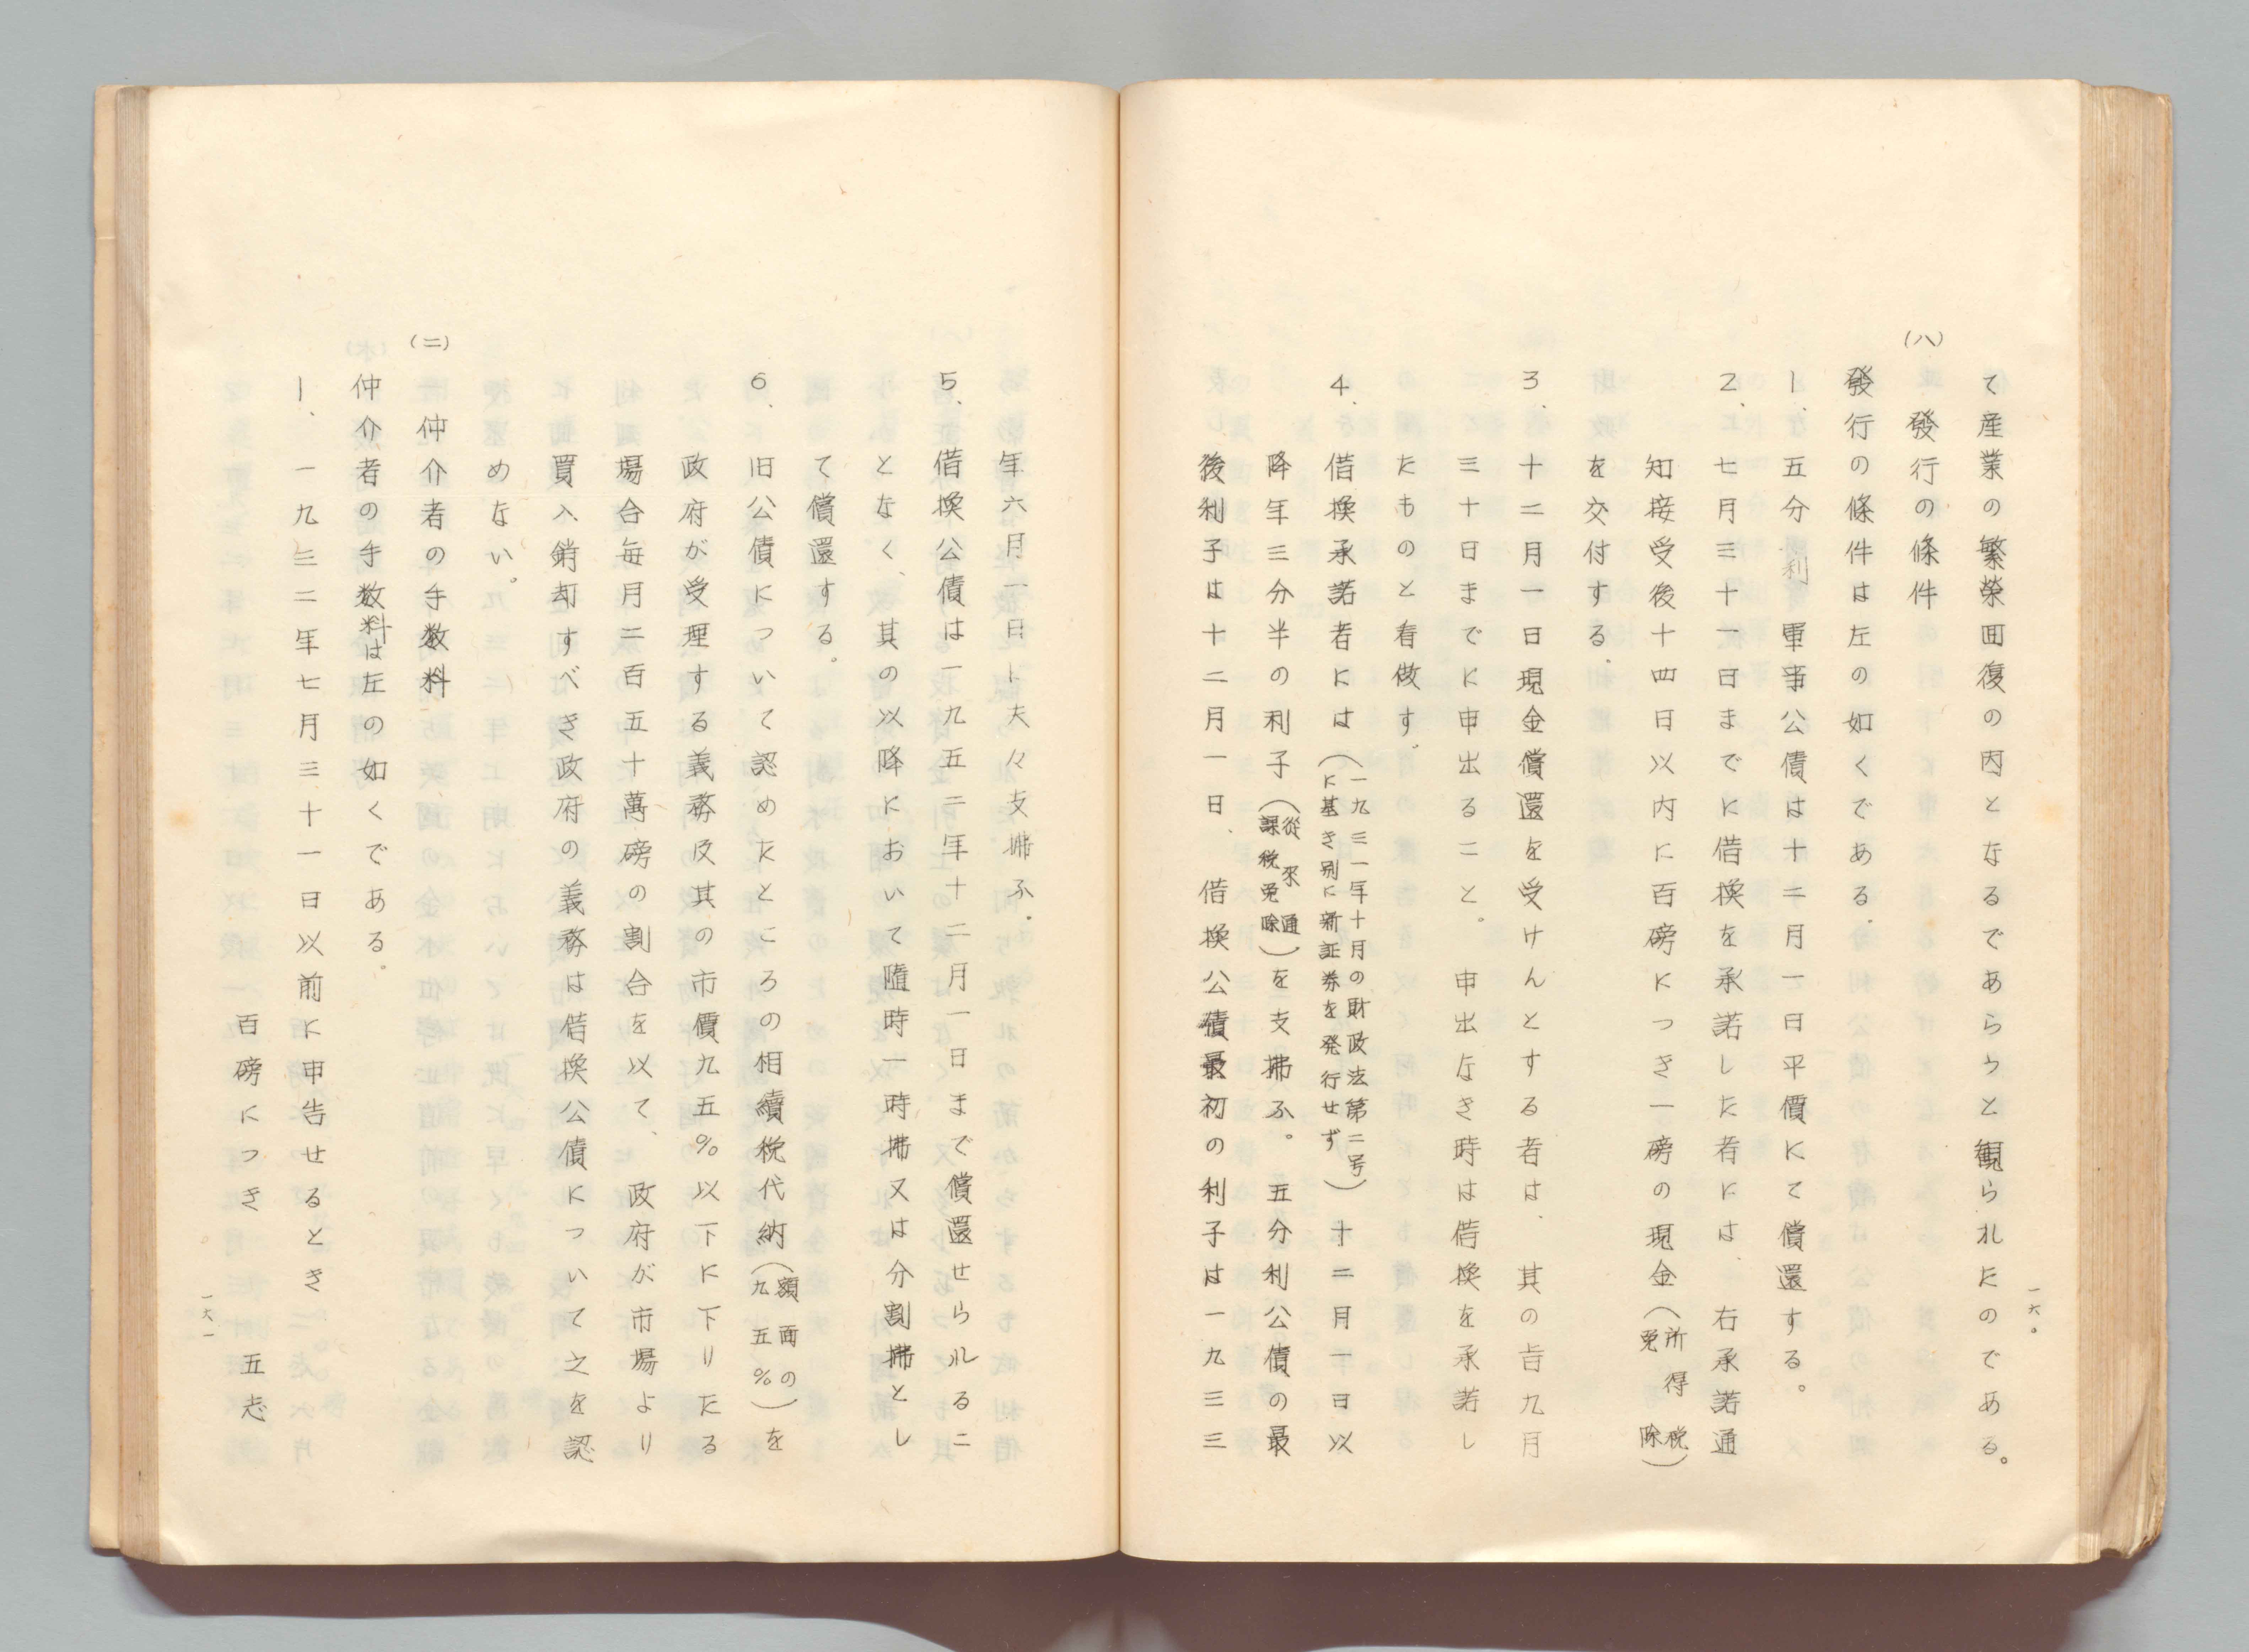 て産業の繁榮囬復の因となるであらうと観られたのである。
(ハ)
發行の條件
發行の條件は左の如くである。
1、五分利軍事公債は十二月一日平價にて償還する。
2、七月三十一日までに借換を承諾した者には、右承諾通
知接受後十四日以内に百磅につき一磅の現金(所得税免除)
を交付する。
3、十二月一日現金償還を受けんとする者は、其の旨九月
三十日までに申出ること。申出なき時は借換を承諾し
たものと看做す。
4、借換承諾者には(一九三一年十月の財政法第二号に基き別に新証券を発行せず)十二月一日以
降年三分半の利子(從來通課税免除)を支拂ふ。五分利公債の最
後利子は十二月一日、借換公債最初の利子は一九三三
一六〇
年六月一日に夫々支拂ふ。
5、借換公債は一九五二年十二月一日まで償還せられるこ
となく、其の以降において隨時一時拂又は分割拂とし
て償還する。
6、旧公債について認めたところの相續税代納(額面の九五%)を
政府が受理する義務及其の市價九五%以下に下りたる
場合毎月二百五十萬磅の割合を以て、政府が市場より
買入銷却すべき政府の義務は借換公債について之を認
めない。
(ニ)
仲介者の手数料
仲介者の手数料は左の如くである。
1、一九三二年七月三十一日以前に申告せるとき
百磅につき 五志
一六一